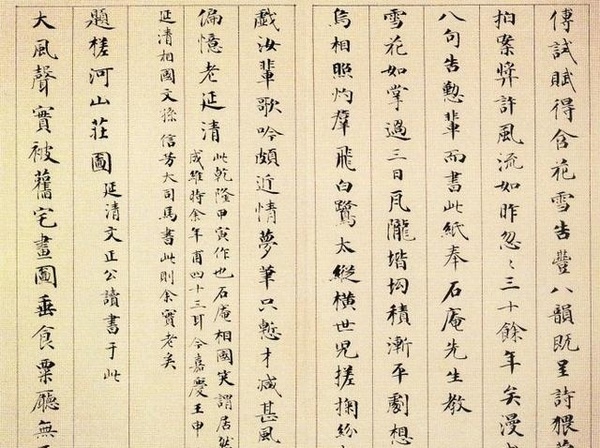 傅試賦得含花雪告豐八韻既呈詩猥
拍案獎許風流如昨忽〻三十餘年矣漫
八句告憨輩而書此紙奉石庵先生教
雪花如掌過三日瓦隴堦坳積漸平劇想
烏相照灼羣飛白鷺太縱橫世兒搓掬紛
戲汝輩歌吟頗近情夢筆只慙才減甚風
偏憶老延清 此乾隆甲寅作也石庵相國笑謂居然
咸維時余年甫四十三耳今嘉慶壬申
延清相國文孫信芳大司馬書此則余實老矣
題槎河山莊圖 延清文正公讀書于此
大風聲實被舊宅畫圖垂食粟廳無